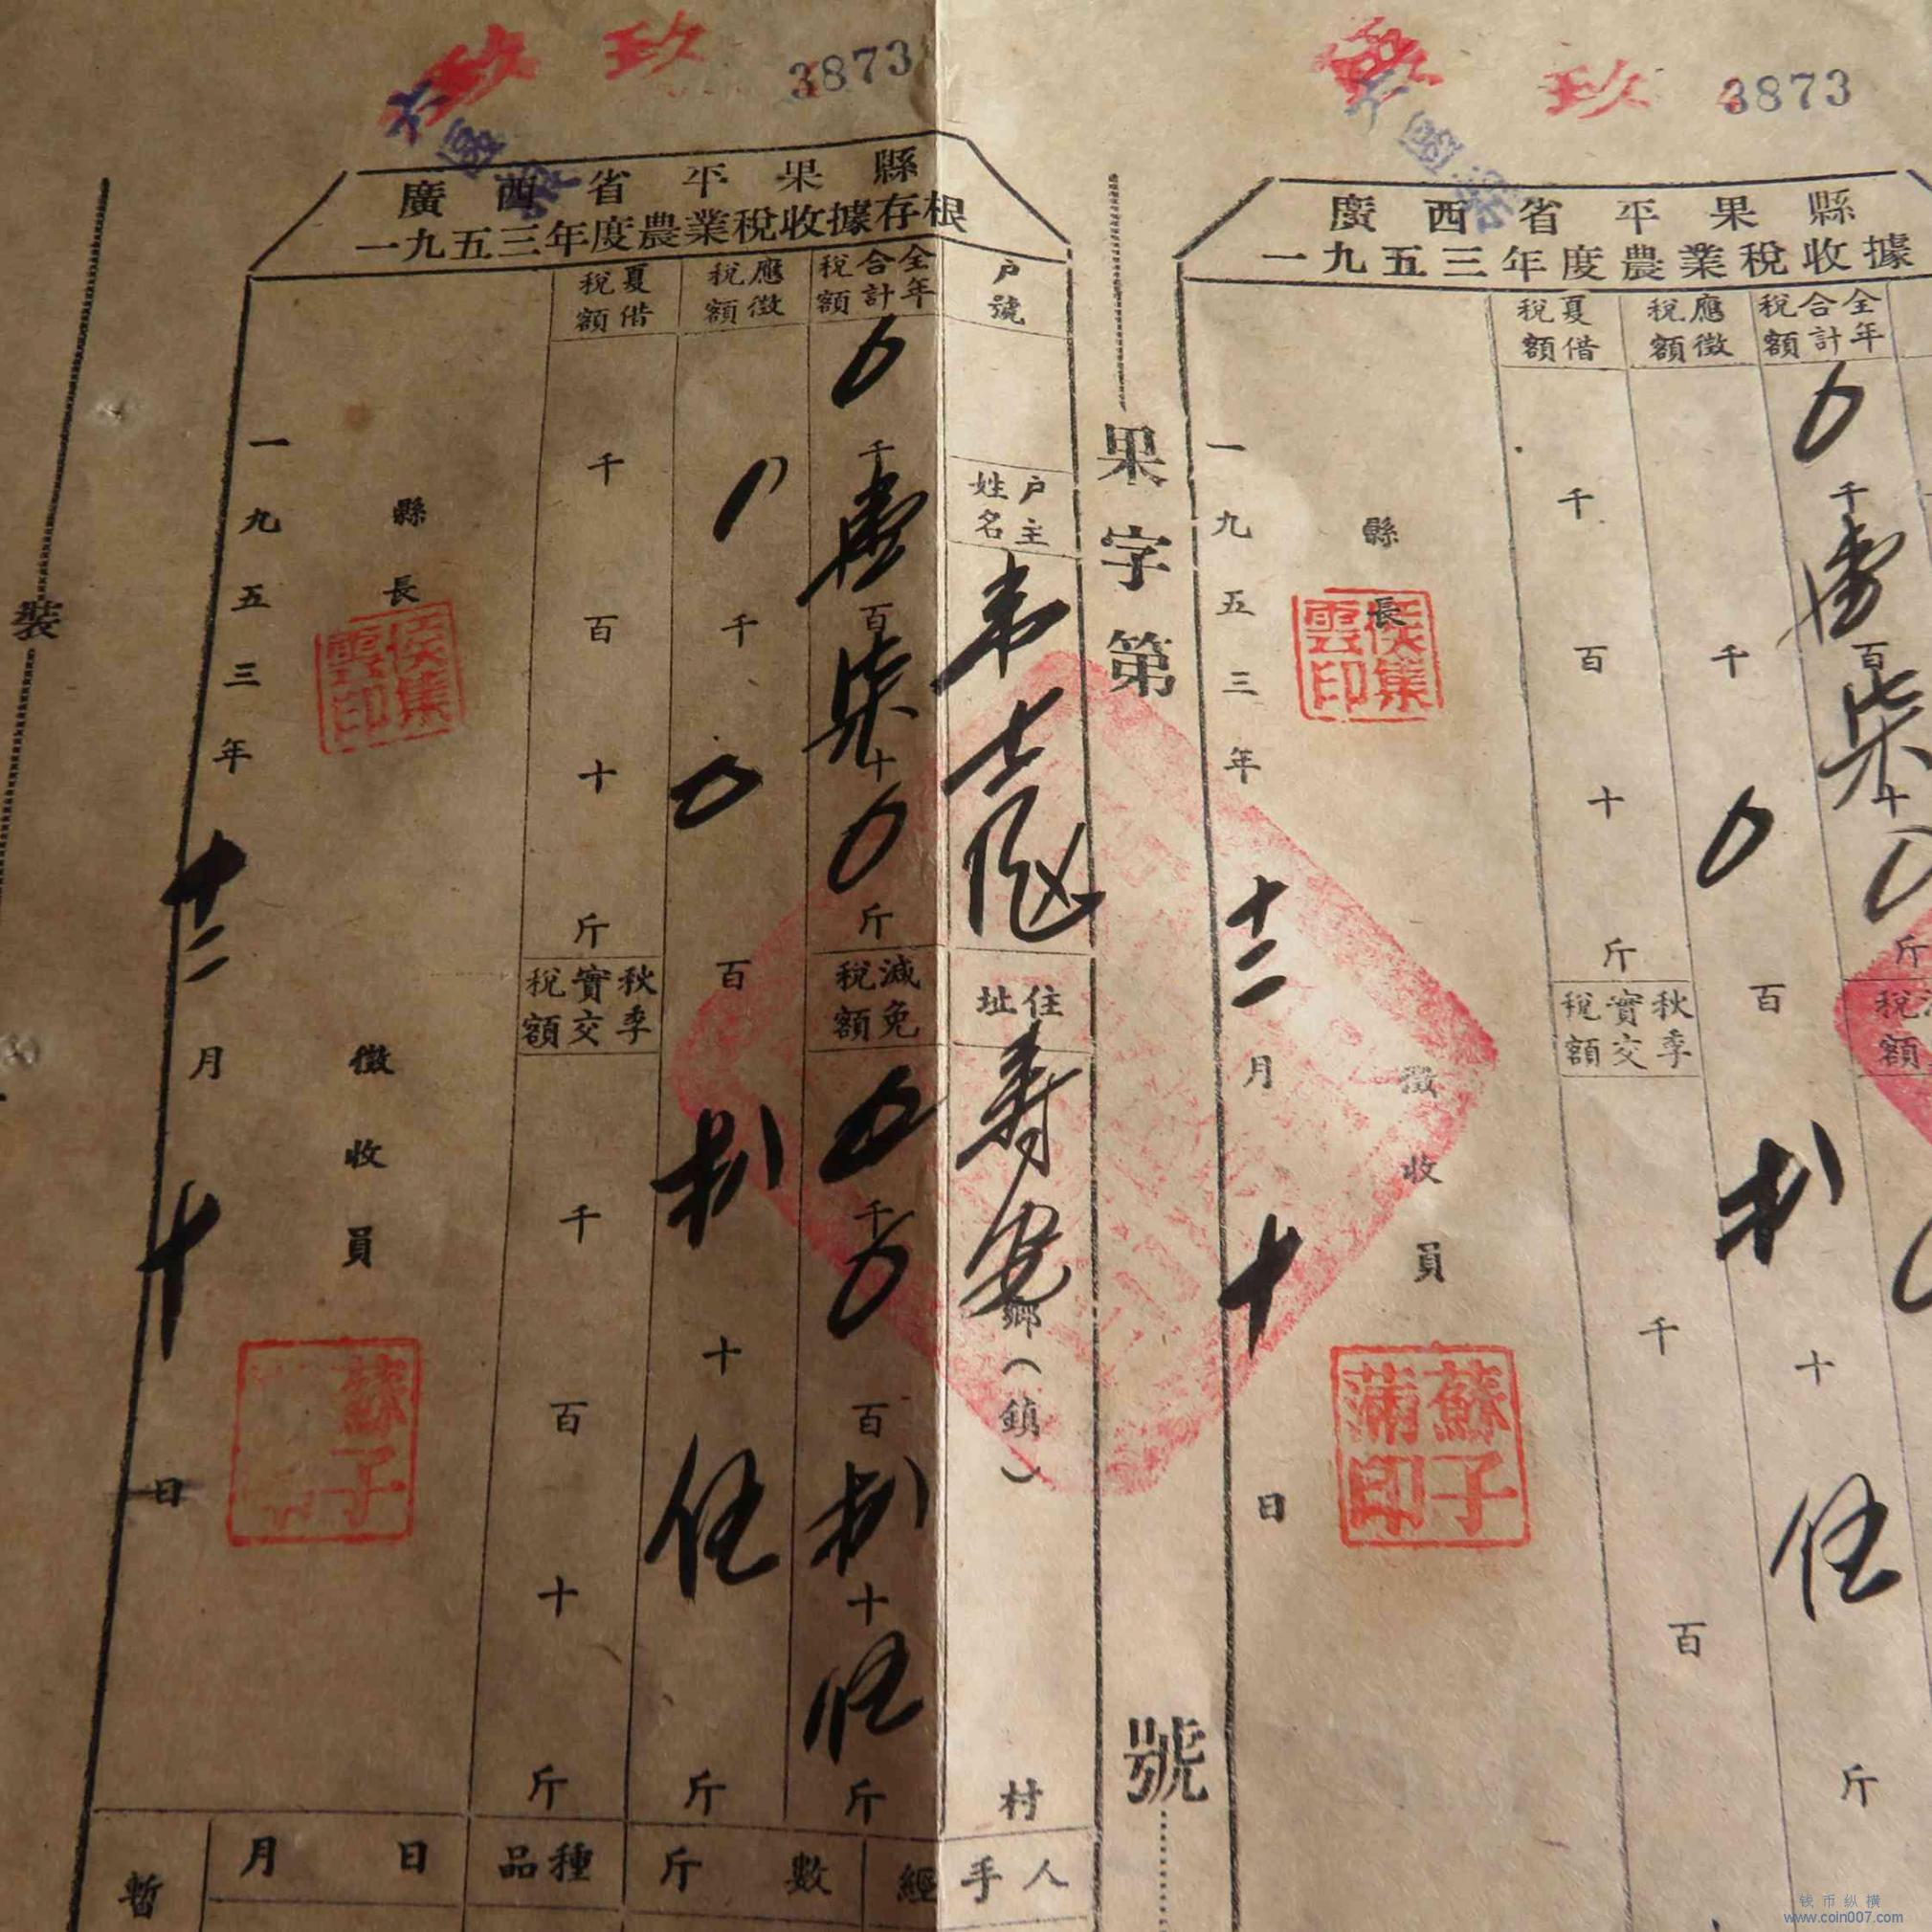 玖 玖 3873
廣西省平果縣
一九五三年度農業稅收據存根
戶號
戶主姓名
韦
住址 寿安 鄉(鎮) 村
全年合計稅額 0千壹百柒十0斤
減免稅額 0千0百捌十伍斤
應徵稅額 0千0百捌十伍斤
夏借稅額 千百十斤
秋季實交稅額 千百十斤
縣長
侯集雲印
徵收員
蘇子
一九五三年十二月十日
暫
月 日
品種
斤數
經手人
裝
果字第 號
玖 3873
廣西省平果縣
一九五三年度農業稅收據
全年合計稅額 0千壹百柒十0斤
應徵稅額 千0百捌十伍斤
夏借稅額 千百十斤
秋季實交稅額 千百
縣長
侯集雲印
徵收員
蘇子滿印
一九五三年十二月十日
钱币纵横
www.coin007.com